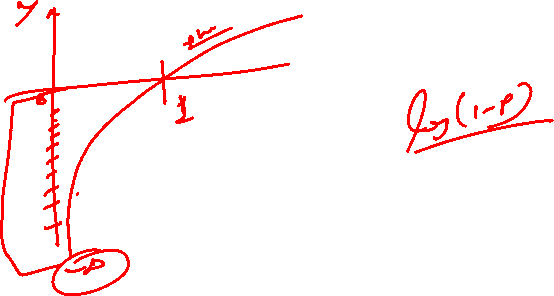 y
0
1
-∞
log(1-p)